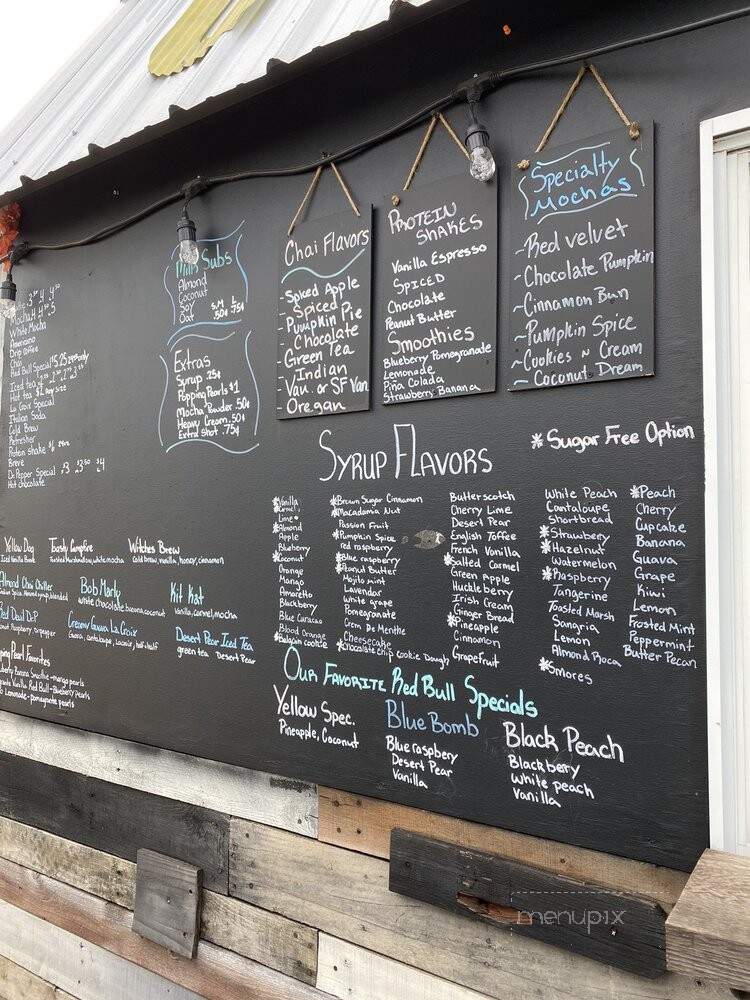 White Mocha
Americano
Drip Coffee
Chai
Red Bull Special
Iced tea
Hot tea $1
La Croix Special
Italian Soda
Cold Brew
Refresher
Protein shake
Breve
Dr. Pepper Special
Hot chocolate
Milk Subs
Almond
Coconut
Soy
Oat
S.M L
50¢ .75¢
Extras
Syrup 25¢
Popping Pearls $1
Mocha Powder .50¢
Heavy Cream .50¢
Extra Shot .75¢
Chai Flavors
- Spiced Apple
- Spiced
- Pumpkin Pie
- Chocolate
- Green Tea
- Indian
- Van. or SF Van
- Oregan
PROTEIN
SHAKES
Vanilla Espresso
SPICED
Chocolate
Peanut Butter
Smoothies
Blueberry Pomegranate
Lemonade
Piña Colada
Strawberry Banana
Specialty
Mochas
~ Red velvet
~ Chocolate Pumpkin
~ Cinnamon Bun
~ Pumpkin Spice
~ Cookies ~ Cream
~ Coconut Dream
SYRUP FLAVORS
* Sugar Free Option
*Vanilla
*Carmel
Lime
*Almond
Apple
Blueberry
*Coconut
Orange
Mango
Amaretto
Blackberry
Blue Curacao
Blood Orange
*Belgian cookie
*Brown Sugar Cinnamon
*Macadamia Nut
Passion Fruit
*Pumpkin Spice
red raspberry
*Blue raspberry
*Peanut Butter
Mojito mint
Lavendar
White grape
Pomegranate
Crem De Menthe
Cheesecake
*Chocolate Chip cookie Dough
Butterscotch
Cherry Lime
Desert Pear
English Toffee
French Vanilla
*Salted Carmel
Green Apple
Huckleberry
Irish Cream
Ginger Bread
*Pineapple
Cinnamon
GrapeFruit
White Peach
Cantaloupe
Shortbread
*Strawberry
*Hazelnut
Watermelon
*Raspberry
Tangerine
Toasted Marsh
Sangria
Lemon
Almond Roca
*Smores
*Peach
Cherry
Cupcake
Banana
Guava
Grape
Kiwi
Lemon
Frosted Mint
Peppermint
Butter Pecan
Yellow Dog
Iced Vanilla
Toasty Campfire
Toasted Marshmallow, white mocha
Witches Brew
Cold brew, vanilla, honey, cinnamon
Almond Chai Chiller
Bob Marly
White chocolate, banana, coconut
Kit Kat
Vanilla, carmel, mocha
Creamy Guava La Croix
Guava, cantaloupe, Lacroix, half+half
Desert Pear Iced Tea
green tea Desert Pear
Pearl Favorites
OUR FAVORITE Red Bull Specials
Yellow Spec.
Pineapple, Coconut
Blue Bomb
Blue raspbery
Desert Pear
Vanilla
Black Peach
Blackbery
white peach
Vanilla
menupix